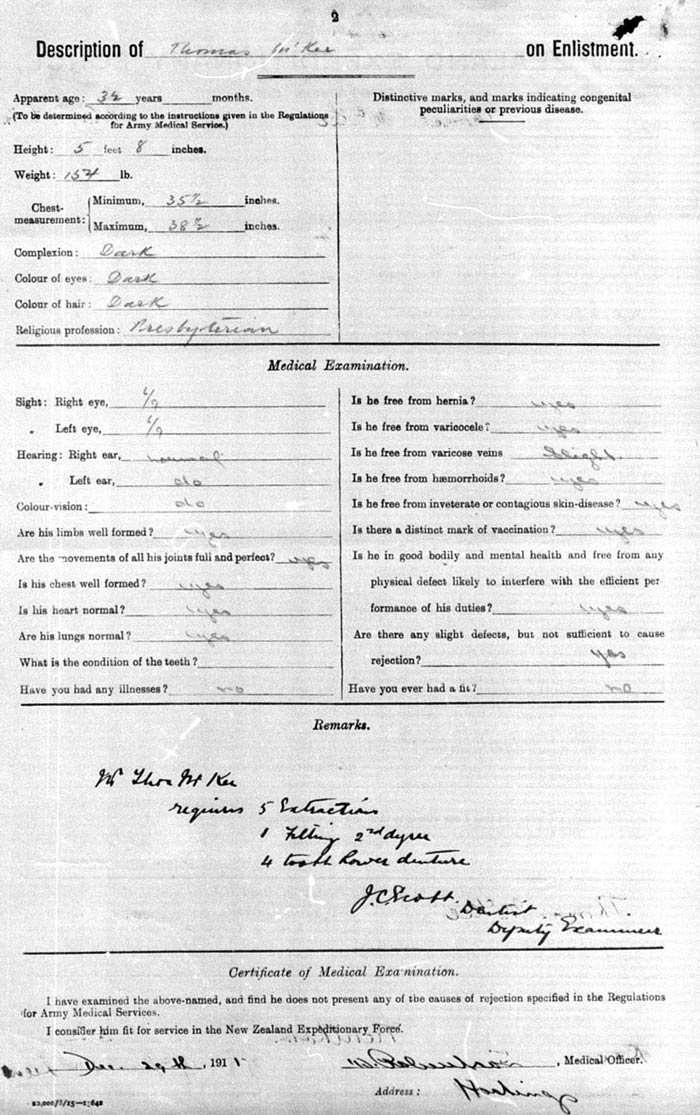 2
Description of Thomas McKee on Enlistment.
Apparent age: years months.
(To be determined according to the instructions given in the Regulations
for Army Medical Service.)
Height: 5 feet 8 inches.
Weight: 154 lb.
Chest-measurement: Minimum, 35½ inches.
Maximum, 38½ inches.
Complexion: Dark
Colour of eyes: Dark
Colour of hair: Dark
Religious profession: Presbyterian
Distinctive marks, and marks indicating congenital
peculiarities or previous disease.
Medical Examination.
Sight: Right eye, 6/9
„ Left eye, 6/9
Hearing: Right ear, normal
„ Left ear, do
Colour-vision: do
Are his limbs well formed? yes
Are the movements of all his joints full and perfect? yes
Is his chest well formed? yes
Is his heart normal? yes
Are his lungs normal? yes
What is the condition of the teeth?
Have you had any illnesses? no
Is he free from hernia? yes
Is he free from varicocele? yes
Is he free from varicose veins Slight.
Is he free from hæmorrhoids? yes
Is he free from inveterate or contagious skin-disease? yes
Is there a distinct mark of vaccination? yes
Is he in good bodily and mental health and free from any
physical defect likely to interfere with the efficient per
formance of his duties? yes
Are there any slight defects, but not sufficient to cause
rejection? yes
Have you ever had a fit? no
Remarks.
Mr Thos McKee
requires 5 Extractions
1 Filling 2nd dgree
4 tooth lower denture
J.C. Scott. Dentist
Deputy Examiner
Certificate of Medical Examination.
I have examined the above-named, and find he does not present any of the causes of rejection specified in the Regulations
for Army Medical Services.
I consider him fit for service in the New Zealand Expeditionary Force.
Dec. 29th, 1915 , Medical Officer.
Address: Hastings
20,000/8/15—1;642